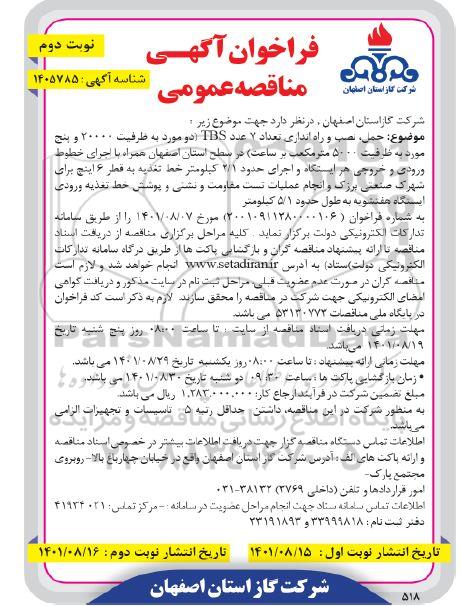 نوبت دوم
شناسه آگهی: ۱۴۰۵۷۸۵
فراخوان آگهی
مناقصه عمومی
شرکت گاز استان اصفهان
شرکت گاز استان اصفهان , درنظر دارد جهت موضوع زیر :
موضوع: حمل، نصب و راه اندازی تعداد ۷ عدد TBS (دو مورد به ظرفیت ۲۰۰۰۰ و پنج
مورد به ظرفیت ۵۰۰۰ مترمکعب بر ساعت) در سطح استان اصفهان همراه با اجرای خطوط
ورودی و خروجی هر ایستگاه و اجرای حدود ۲/۱ کیلومتر خط تغذیه به قطر ۶ اینچ برای
شهرک صنعتی برزک و انجام عملیات تست مقاومت و نشتی و پوشش خط تغذیه ورودی
ایستگاه هفتشویه به طول حدود ۵/۱ کیلومتر
به شماره فراخوان (۲۰۰۱۰۹۱۱۲۸۰۰۰۱۰۶) مورخ ۱۴۰۱/۰۸/۰۷ را از طریق سامانه
تدارکات الکترونیکی دولت برگزار نماید . کلیه مراحل برگزاری مناقصه از دریافت اسناد
مناقصه تا ارائه پیشنهاد مناقصه گران و بازگشایی پاکت ها از طریق درگاه سامانه تدارکات
الکترونیکی دولت(ستاد) به آدرس www.setadiran.ir انجام خواهد شد و لازم است
مناقصه گران در صورت عدم عضویت قبلی، مراحل ثبت نام در سایت مذکور و دریافت گواهی
امضای الکترونیکی جهت شرکت در مناقصه را محقق سازند. لازم به ذکر است کد فراخوان
در پایگاه ملی مناقصات ۵۳۱۳۰۷۷۳ می باشد.
مهلت زمانی دریافت اسناد مناقصه از سایت : تا ساعت ۰۸:۰۰ روز پنج شنبه تاریخ
۱۴۰۱/۰۸/۱۹ می‌باشد.
مهلت زمانی ارائه پیشنهاد : تا ساعت ۰۸:۰۰ روز یکشنبه تاریخ ۱۴۰۱/۰۸/۲۹ می باشد.
• زمان بازگشایی پاکت ها : ساعت ۰۹:۳۰ دو شنبه تاریخ ۱۴۰۱/۰۸/۳۰ می باشد.
مبلغ تضمین شرکت در فرآیند ارجاع کار: ۱,۲۸۳,۰۰۰,۰۰۰ ریال می باشد.
به منظور شرکت در این مناقصه، داشتن حداقل رتبه ۵ تاسیسات و تجهیزات الزامی
می‌باشد.
اطلاعات تماس دستگاه مناقصه گزار جهت دریافت اطلاعات بیشتر در خصوص اسناد مناقصه
و ارائه پاکت های الف: آدرس شرکت گاز استان اصفهان واقع در خیابان چهارباغ بالا- روبروی
مجتمع پارک-
امور قراردادها و تلفن (داخلی ۲۷۶۹) ۳۸۱۳۲-۰۳۱
اطلاعات تماس سامانه ستاد جهت انجام مراحل عضویت در سامانه : - مرکز تماس : ۰۲۱ ۴۱۹۳۴
دفتر ثبت نام : ۳۳۹۹۹۸۱۸ و ۲۳۱۹۱۸۹۳
تاریخ انتشار نوبت اول : ۱۴۰۱/۰۸/۱۵
تاریخ انتشار نوبت دوم : ۱۴۰۱/۰۸/۱۶
شرکت گاز استان اصفهان
۵۱۸